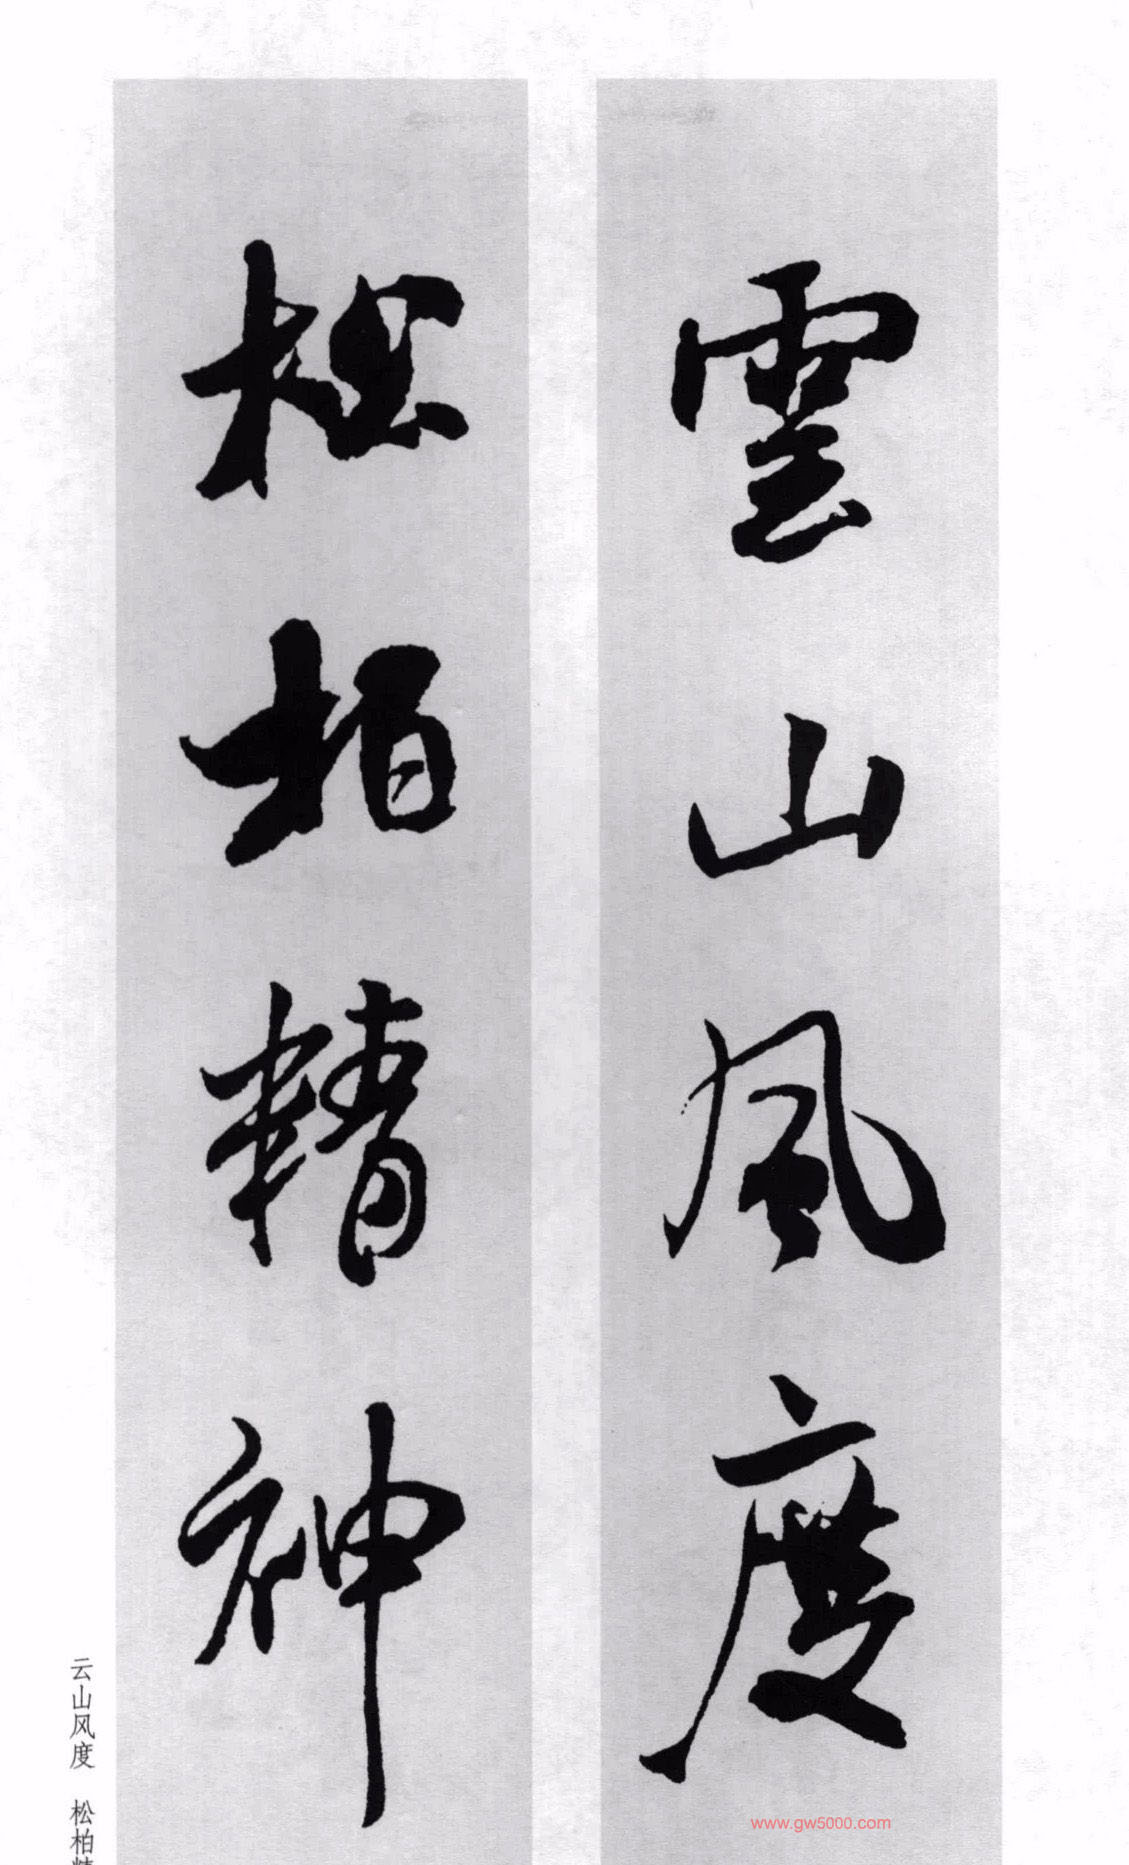 雲山風度
松柏精神
云山风度 松柏精
www.gw5000.com